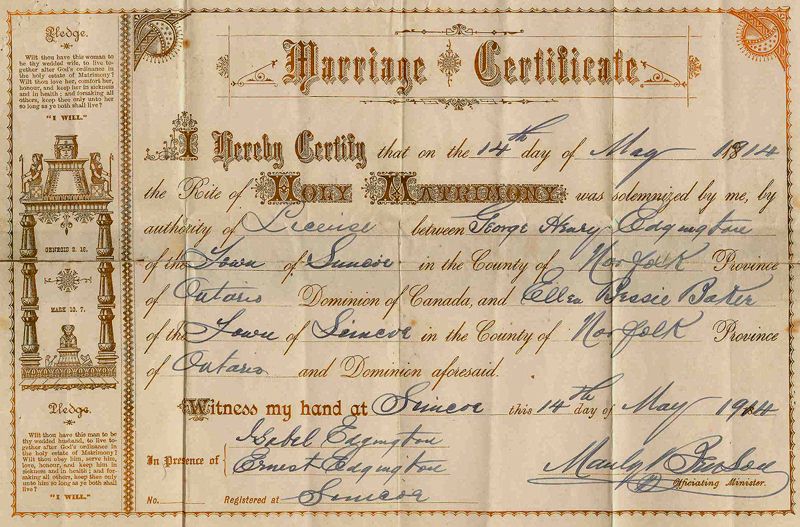 Pledge.
Wilt thou have this woman to
be thy wedded wife, to live to-
gether after God's ordinance in
the holy estate of Matrimony?
Wilt thou love her, comfort her,
honour, and keep her in sickness
and in health; and forsaking all
others, keep thee only unto her
so long as ye both shall live?
"I WILL."
GENESIS 2. 18.
MARK 10. 7.
Pledge.
Wilt thou have this man to be
thy wedded husband, to live to-
gether after God's ordinance in
the holy estate of Matrimony?
Wilt thou obey him, serve him,
love, honour, and keep him in
sickness and in health; and for-
saking all others, keep thee only
unto him so long as ye both shall
live?
"I WILL."
Marriage Certificate
I Hereby Certify that on the 14th day of May 1914
the Rite of HOLY MATRIMONY was solemnized by me, by
authority of License between George Henry Edgington
of the Town of Simcoe in the County of Norfolk Province
of Ontario Dominion of Canada, and Ellen Bessie Baker
of the Town of Simcoe in the County of Norfolk Province
of Ontario and Dominion aforesaid.
Witness my hand at Simcoe this 14th day of May 1914
In Presence of Isabel Edgington
Ernest Edgington
Officiating Minister.
No. Registered at Simcoe